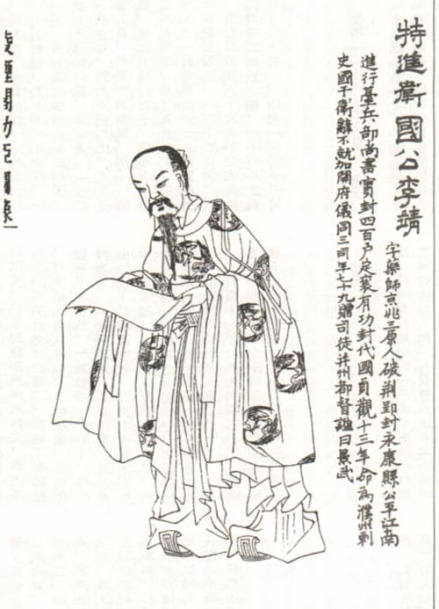 特進衛國公李靖
字藥師京兆三原人破荆郢封永康縣公平江南
進行臺兵部尚書實封四百戶定襄有功封代國貞觀十三年命為濮州刺
史國于衛辭不就加開府儀同三司年七十九贈司徒并州都督諡曰景武
凌煙閣功臣圖像